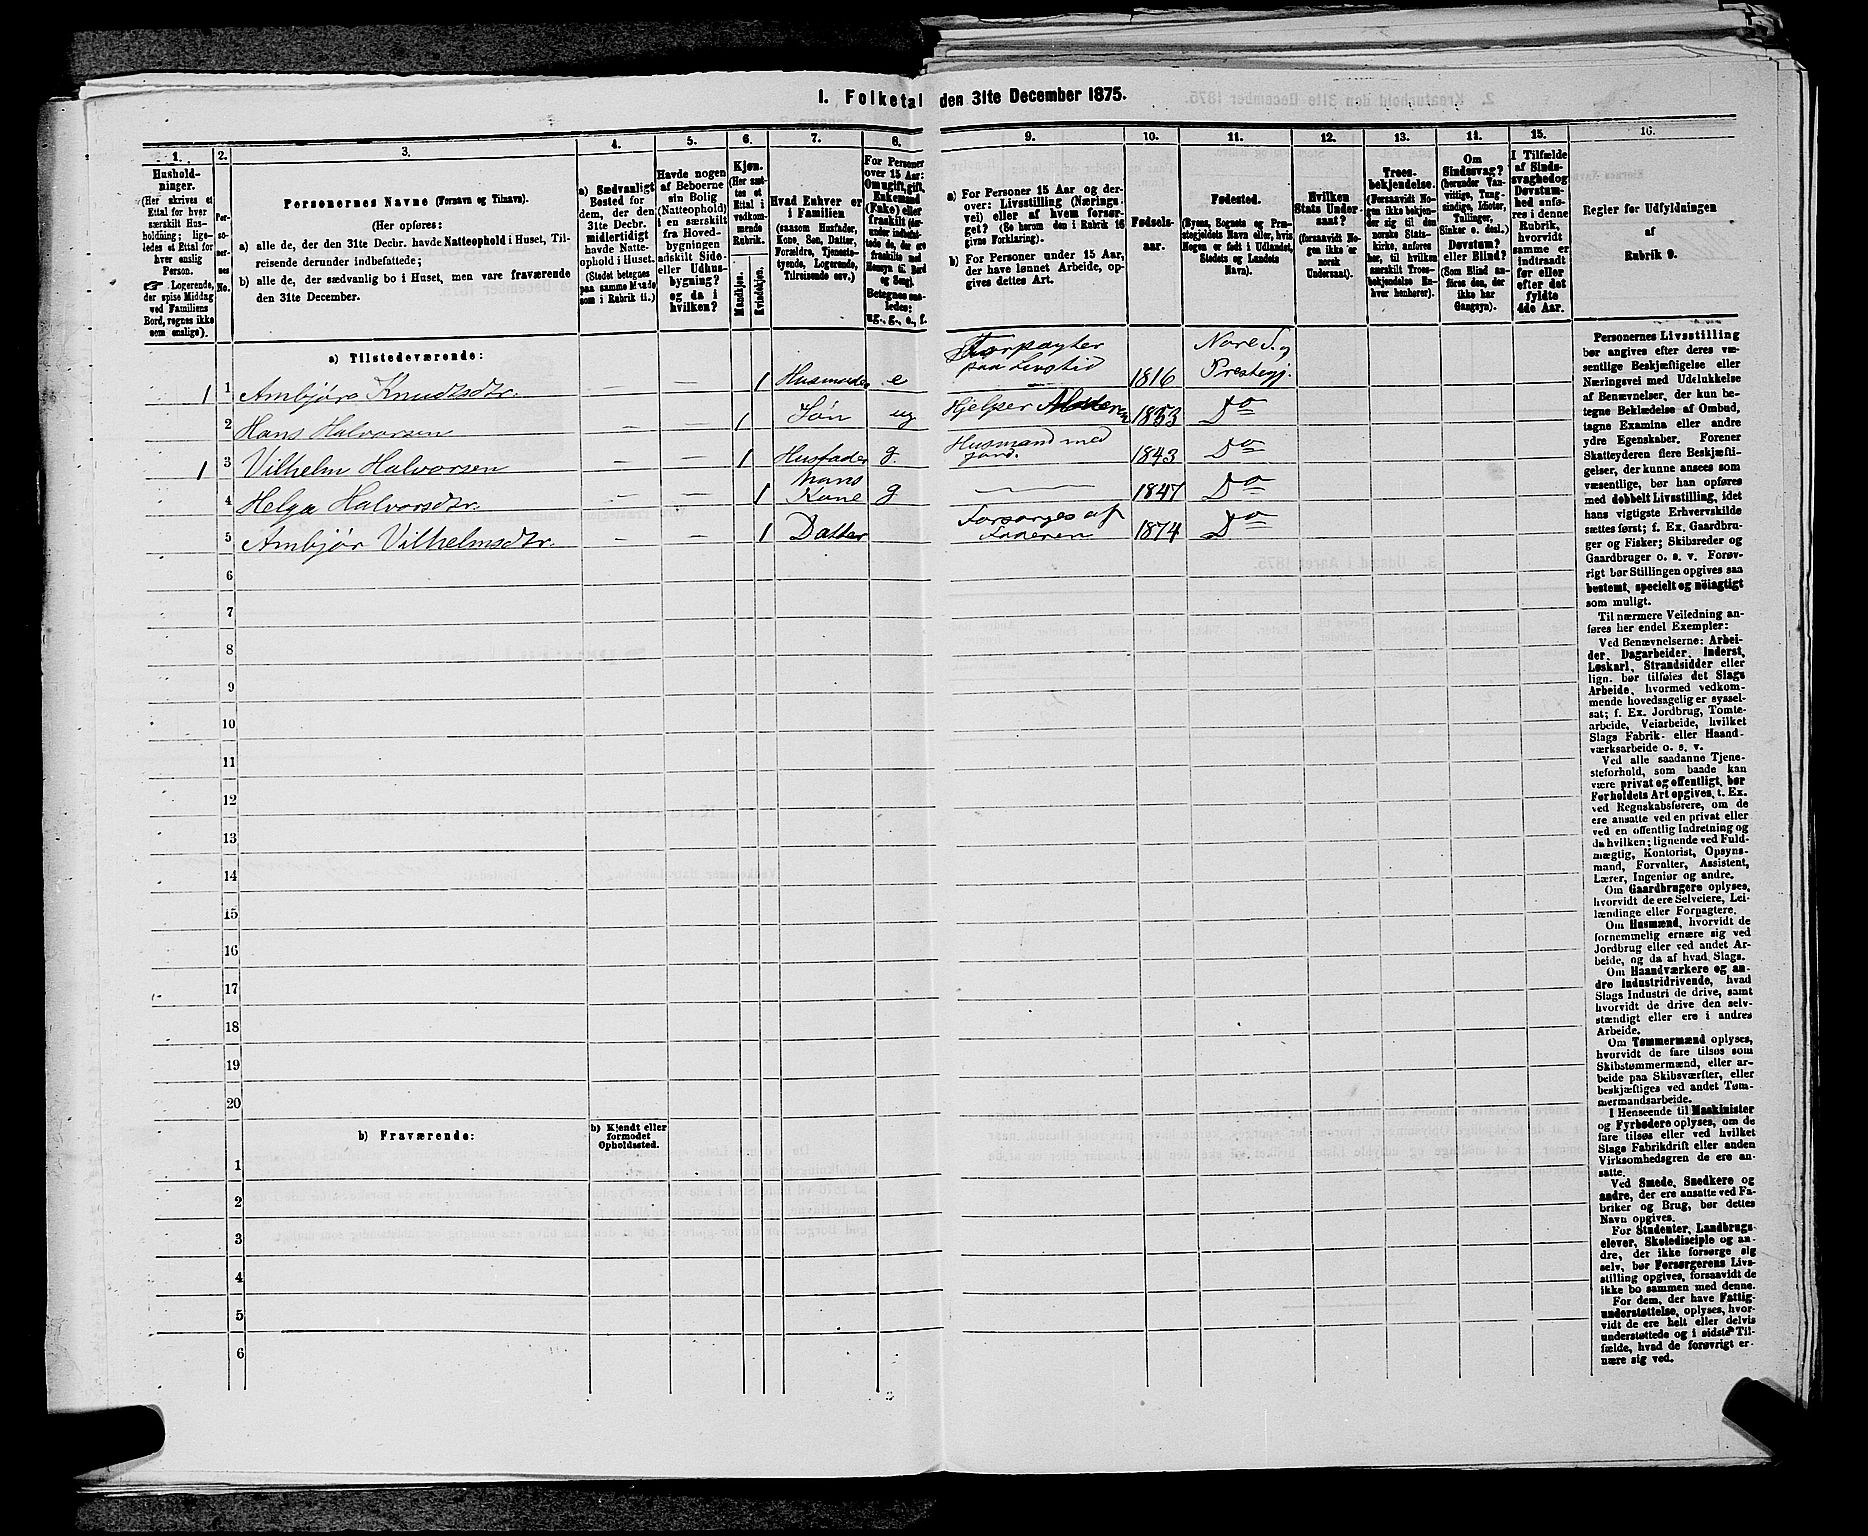 1. Folketal den 31te December 1875.
1. 2. 3. 4. 5. 6. 7. 8. 9. 10. 11. 12. 13. 14. 15. 16.
Hushold-
ninger.
(Her skrives et
Ettal for hver
særskilt Hus-
holdning; lige-
ledes et Ettal for
hver enslig
Person.
☛ Logerende,
der spise Middag
ved Familiens
Bord, regnes ikke
som enslige).
Per-
so-
ner-
nes
No.
Personernes Navne (Fornavn og Tilnavn).
(Her opføres:
a) alle de, der den 31te Decbr. havde Natteophold i Huset, Til-
reisende derunder indbefattede;
b) alle de, der sædvanlig bo i Huset, men vare fraværende
den 31te December.
a) Sædvanligt
Bosted for
dem, der den
31te Decbr.
midlertidigt
havde Natte-
ophold i Huset.
(Stedet betegnes
paa samme Maade
som i Rubrik 11.)
Havde nogen
af Beboerne
sin Bolig
(Natteophold)
i en særskilt
fra Hoved-
bygningen
adskilt Side-
eller Udhus-
bygning?
og da i
hvilken?
Kjøn.
(Her sæt-
tes et
Ettal i
vedkom-
mende
Rubrik.
Mandkjøn.
Kvindekjøn.
Hvad Enhver er
i Familien
(saasom Husfader,
Kone, Søn, Datter,
Forældre, Tjeneste-
tyende, Logerende,
Tilreisende osv.)
For Personer
over 15 Aar:
Om ugift, gift,
Enkemand
(Enke) eller
fraskilt
Betegnes saa-
ledes:
ug., g., e., f.
a) For Personer 15 Aar og der-
over: Livsstilling (Nærings-
vei) eller af hvem forsør-
get? (Se herom den i Rubrik 16
givne Forklaring).
b) For Personer under 15 Aar,
der have lønnet Arbeide, op-
gives dettes Art.
Fødsels-
aar.
Fødested.
(Byens, Sognets og Præ-
stegjeldets Navn eller, hvis
Nogen er født i Udlandet,
Stedets og Landets
Navn).
Hvilken
Stats Under-
saat?
(forsaavidt No-
gen ikke er
norsk
Undersaat).
Troes-
bekjendelse.
(Forsaavidt No-
gen ikke bekjen-
der sig til den
norske Stats-
kirke, anføres
her, til hvilken
særskilt Troes-
bekjendelse En-
hver henhører).
Om
Sindssvag?
(herunder Van-
vittige, Tung-
sindige, Idioter,
Tullinger,
Sinker o. desl.)
Døvstum?
eller Blind?
(Som Blind an-
føres den, der
ikke har
Gangsyn).
I Tilfælde
af Sinds-
svaghed og
Døvstum-
hed anfø-
res i denne
Rubrik,
hvorvidt
samme er
indtraadt
før eller
efter det
fyldte
4de Aar.
Regler for Udfyldningen
af
Rubrik 9.
a) Tilstedeværende:
1 1 Ambjørg Knudtsdtr. — — 1 Husmoder e Forpagter paa Livstid 1816 Nore S. og Prestegj.
2 Hans Halvorsen — — 1 Søn ug Hjelper Moderen 1853 Do
1 3 Vilhelm Halvorsen — — 1 Husfader g. Husmand med Jord. 1843 Do
4 Helga Halvorsdtr. — — 1 Hans Kone g — 1847 Do
5 Ambjør Vilhelmsdtr. — — 1 Datter Forsørges af Faderen 1874 Do
6
7
8
9
10
11
12
13
14
15
16
17
18
19
20
b) Fraværende:
b) Kjendt eller
formodet
Opholdssted.
1
2
3
4
5
6
Personernes Livsstilling
bør angives efter deres væ-
sentlige Beskjæftigelse eller
Næringsvei med Udelukkelse
af Benævnelser, der kun be-
tegne Beklædelse af Ombud,
tagne Examina eller andre
ydre Egenskaber. Forener
Skatteyderen flere Beskjæfti-
gelser, der kunne ansees som
væsentlige, bør han opføres
med dobbelt Livsstilling, idet
hans vigtigste Erhvervskilde
sættes først; f. Ex. Gaardbru-
ger og Fisker; Skibsreder og
Gaardbruger o. s. v. Forøv-
rigt bør Stillingen opgives saa
bestemt, specielt og nöiagtigt
som muligt.
Til nærmere Veiledning an-
føres her endel Exempler:
Ved Benævnelserne: Arbei-
der, Dagarbeider, Inderst,
Løskarl, Strandsidder eller
lign. bør tilføies det Slags
Arbeide, hvormed vedkom-
mende hovedsagelig er syssel-
sat; f. Ex. Jordbrug, Tomte-
arbeide, Veiarbeide, hvilket
Slags Fabrik- eller Haand-
værksarbeide o. s. v.
Ved alle saadanne Tjene-
steforhold, som baade kan
være privat og offentligt, bør
Forholdets Art opgives, t. Ex.
ved Regnskabsførere, om de
ere ansatte ved en privat eller
ved en offentlig Indretning og
da hvilken; lignende ved Fuld-
mægtig, Kontorist, Opsyns-
mand, Forvalter, Assistent,
Lærer, Ingeniør og andre.
Om Gaardbrugere oplyses,
hvorvidt de ere Selveiere, Lei-
lændinge eller Forpagtere.
Om Husmænd, hvorvidt de
fornemmelig ernære sig ved
Jordbrug eller ved andet Ar-
beide, og da af hvad Slags.
Om Haandværkere og an-
dre Industridrivende, hvad
Slags Industri de drive, samt
hvorvidt de drive den selv-
stændigt eller ere i andres
Arbeide.
Om Tømmermænd oplyses,
hvorvidt de fare tilsøs som
Skibstømmermænd, eller ar-
beide paa Skibsværfter, eller
beskjæftiges ved andet Tøm-
mermandsarbeide.
I Henseende til Maskinister
og Fyrbødere oplyses, om de
fare tilsøs eller ved hvilket
Slags Fabrikdrift eller anden
Virksomhedsgren de ere an-
satte.
Ved Smede, Snedkere og
andre, der ere ansatte ved Fa-
briker og Brug, bør dettes
Navn opgives.
For Studenter, Landbrugs-
elever, Skoledisciple og an-
dre, der ikke forsørge sig
selv, bør Forsørgerens Livs-
stilling opgives, forsaavidt de
ikke bo sammen med denne.
For dem, der have Fattig-
understøttelse, oplyses, hvor-
vidt de ere helt eller delvis
understøttede og i sidste Til-
fælde, hvad de forøvrigt er-
nære sig ved.